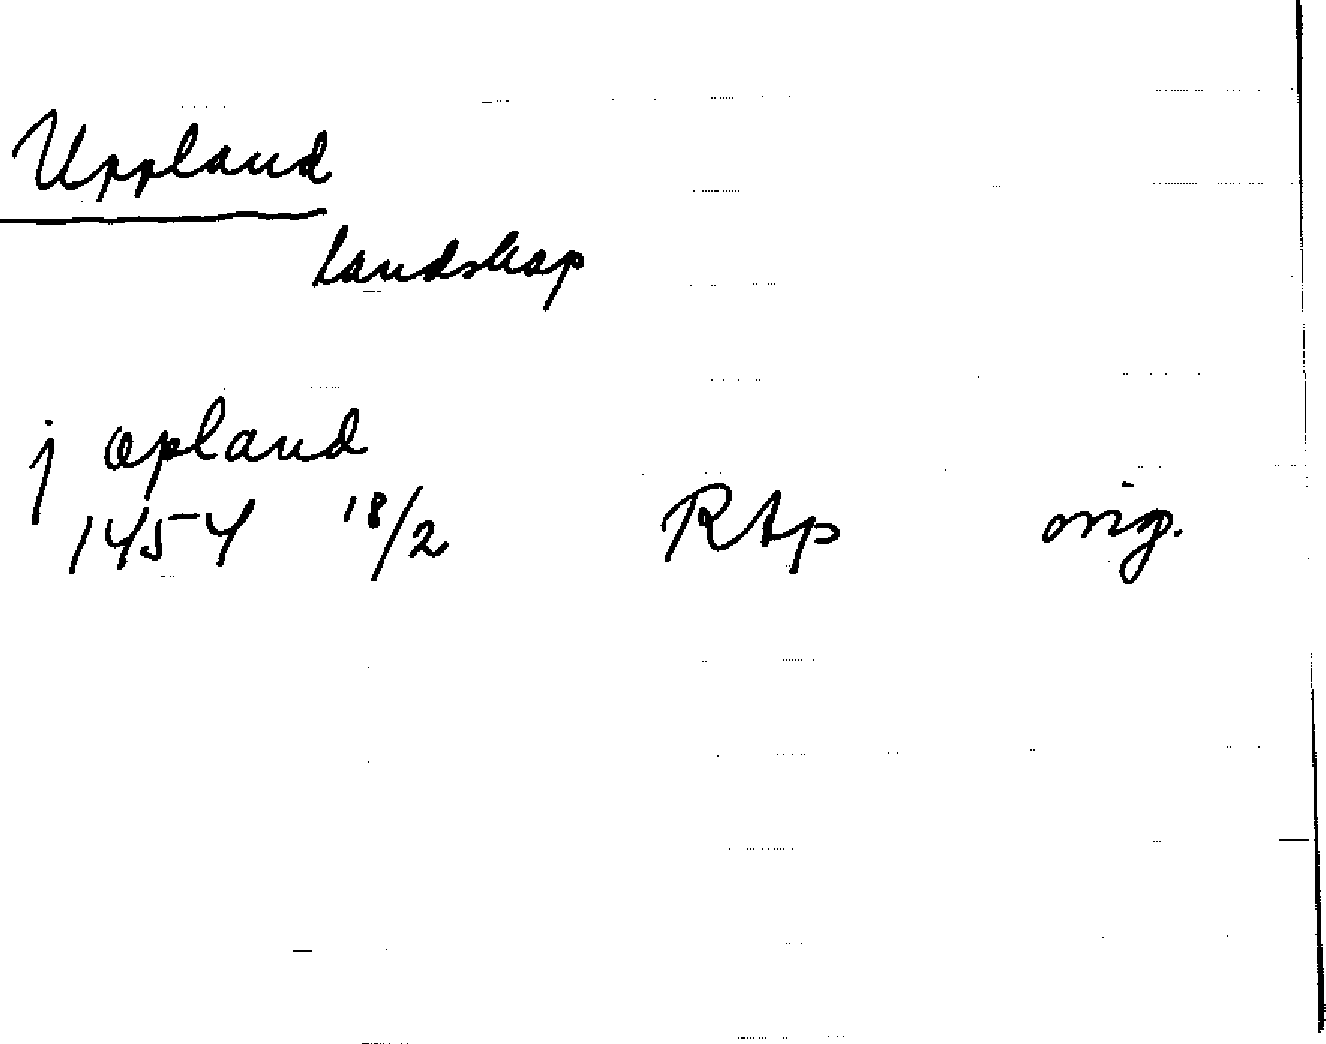 Uppland
landskap
j opland
1454 18/2 Rtp orig.